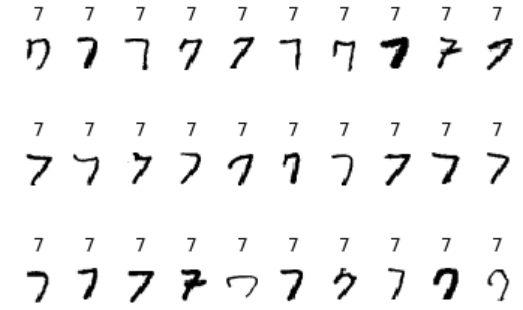 7 7 7 7 7 7 7 7 7 7
7 7 7 7 7 7 7 7 7 7
7 7 7 7 7 7 7 7 7 7
7 7 7 7 7 7 7 7 7 7
7 7 7 7 7 7 7 7 7 7
7 7 7 7 7 7 7 7 7 7